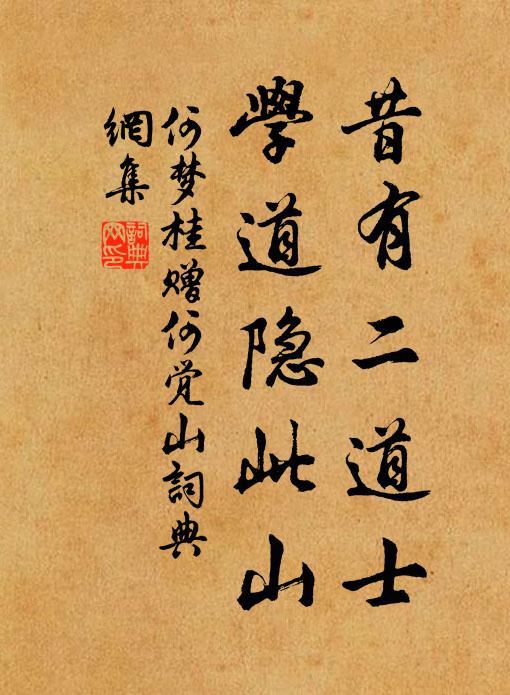 昔有二道士
學道隐此山
何梦桂赠何觉山詞典
網集
詞典
网印